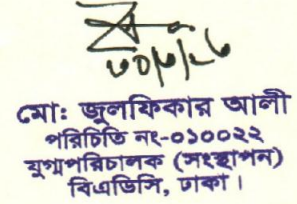 ৩০/৮/২৬
মো: জুলফিকার আলী
পরিচিতি নং-০১০০২২
যুগ্মপরিচালক (সংস্থাপন)
বিএডিসি, ঢাকা।